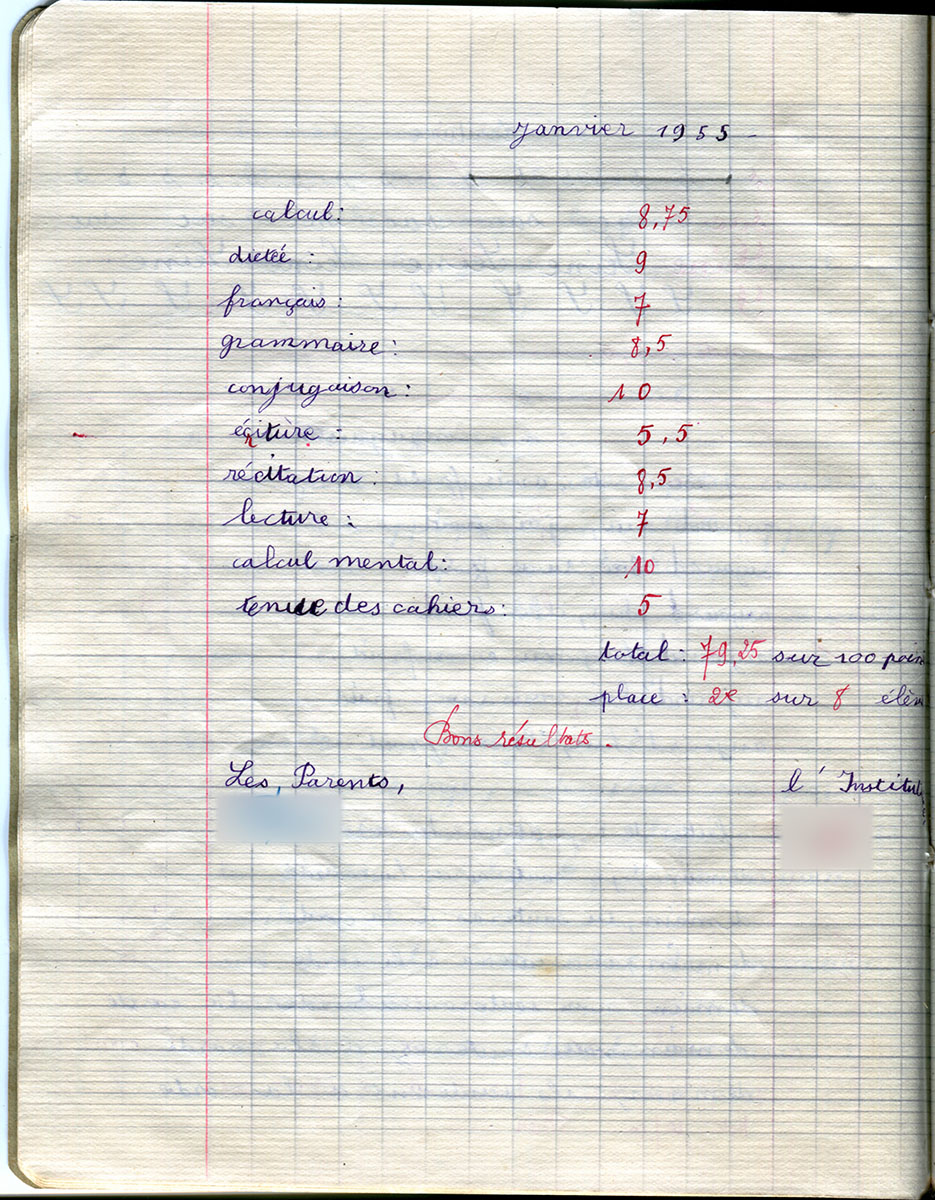 Janvier 1955
calcul: 8,75
dictée : 9
français : 7
grammaire: 8,5
conjugaison : 10
écriture : 5,5
récitation : 8,5
lecture : 7
calcul mental: 10
tenue des cahiers: 5
total : 79,25 sur 100 poin
place : 2e sur 8 élèv
Bons résultats.
Les Parents,
l'Institut